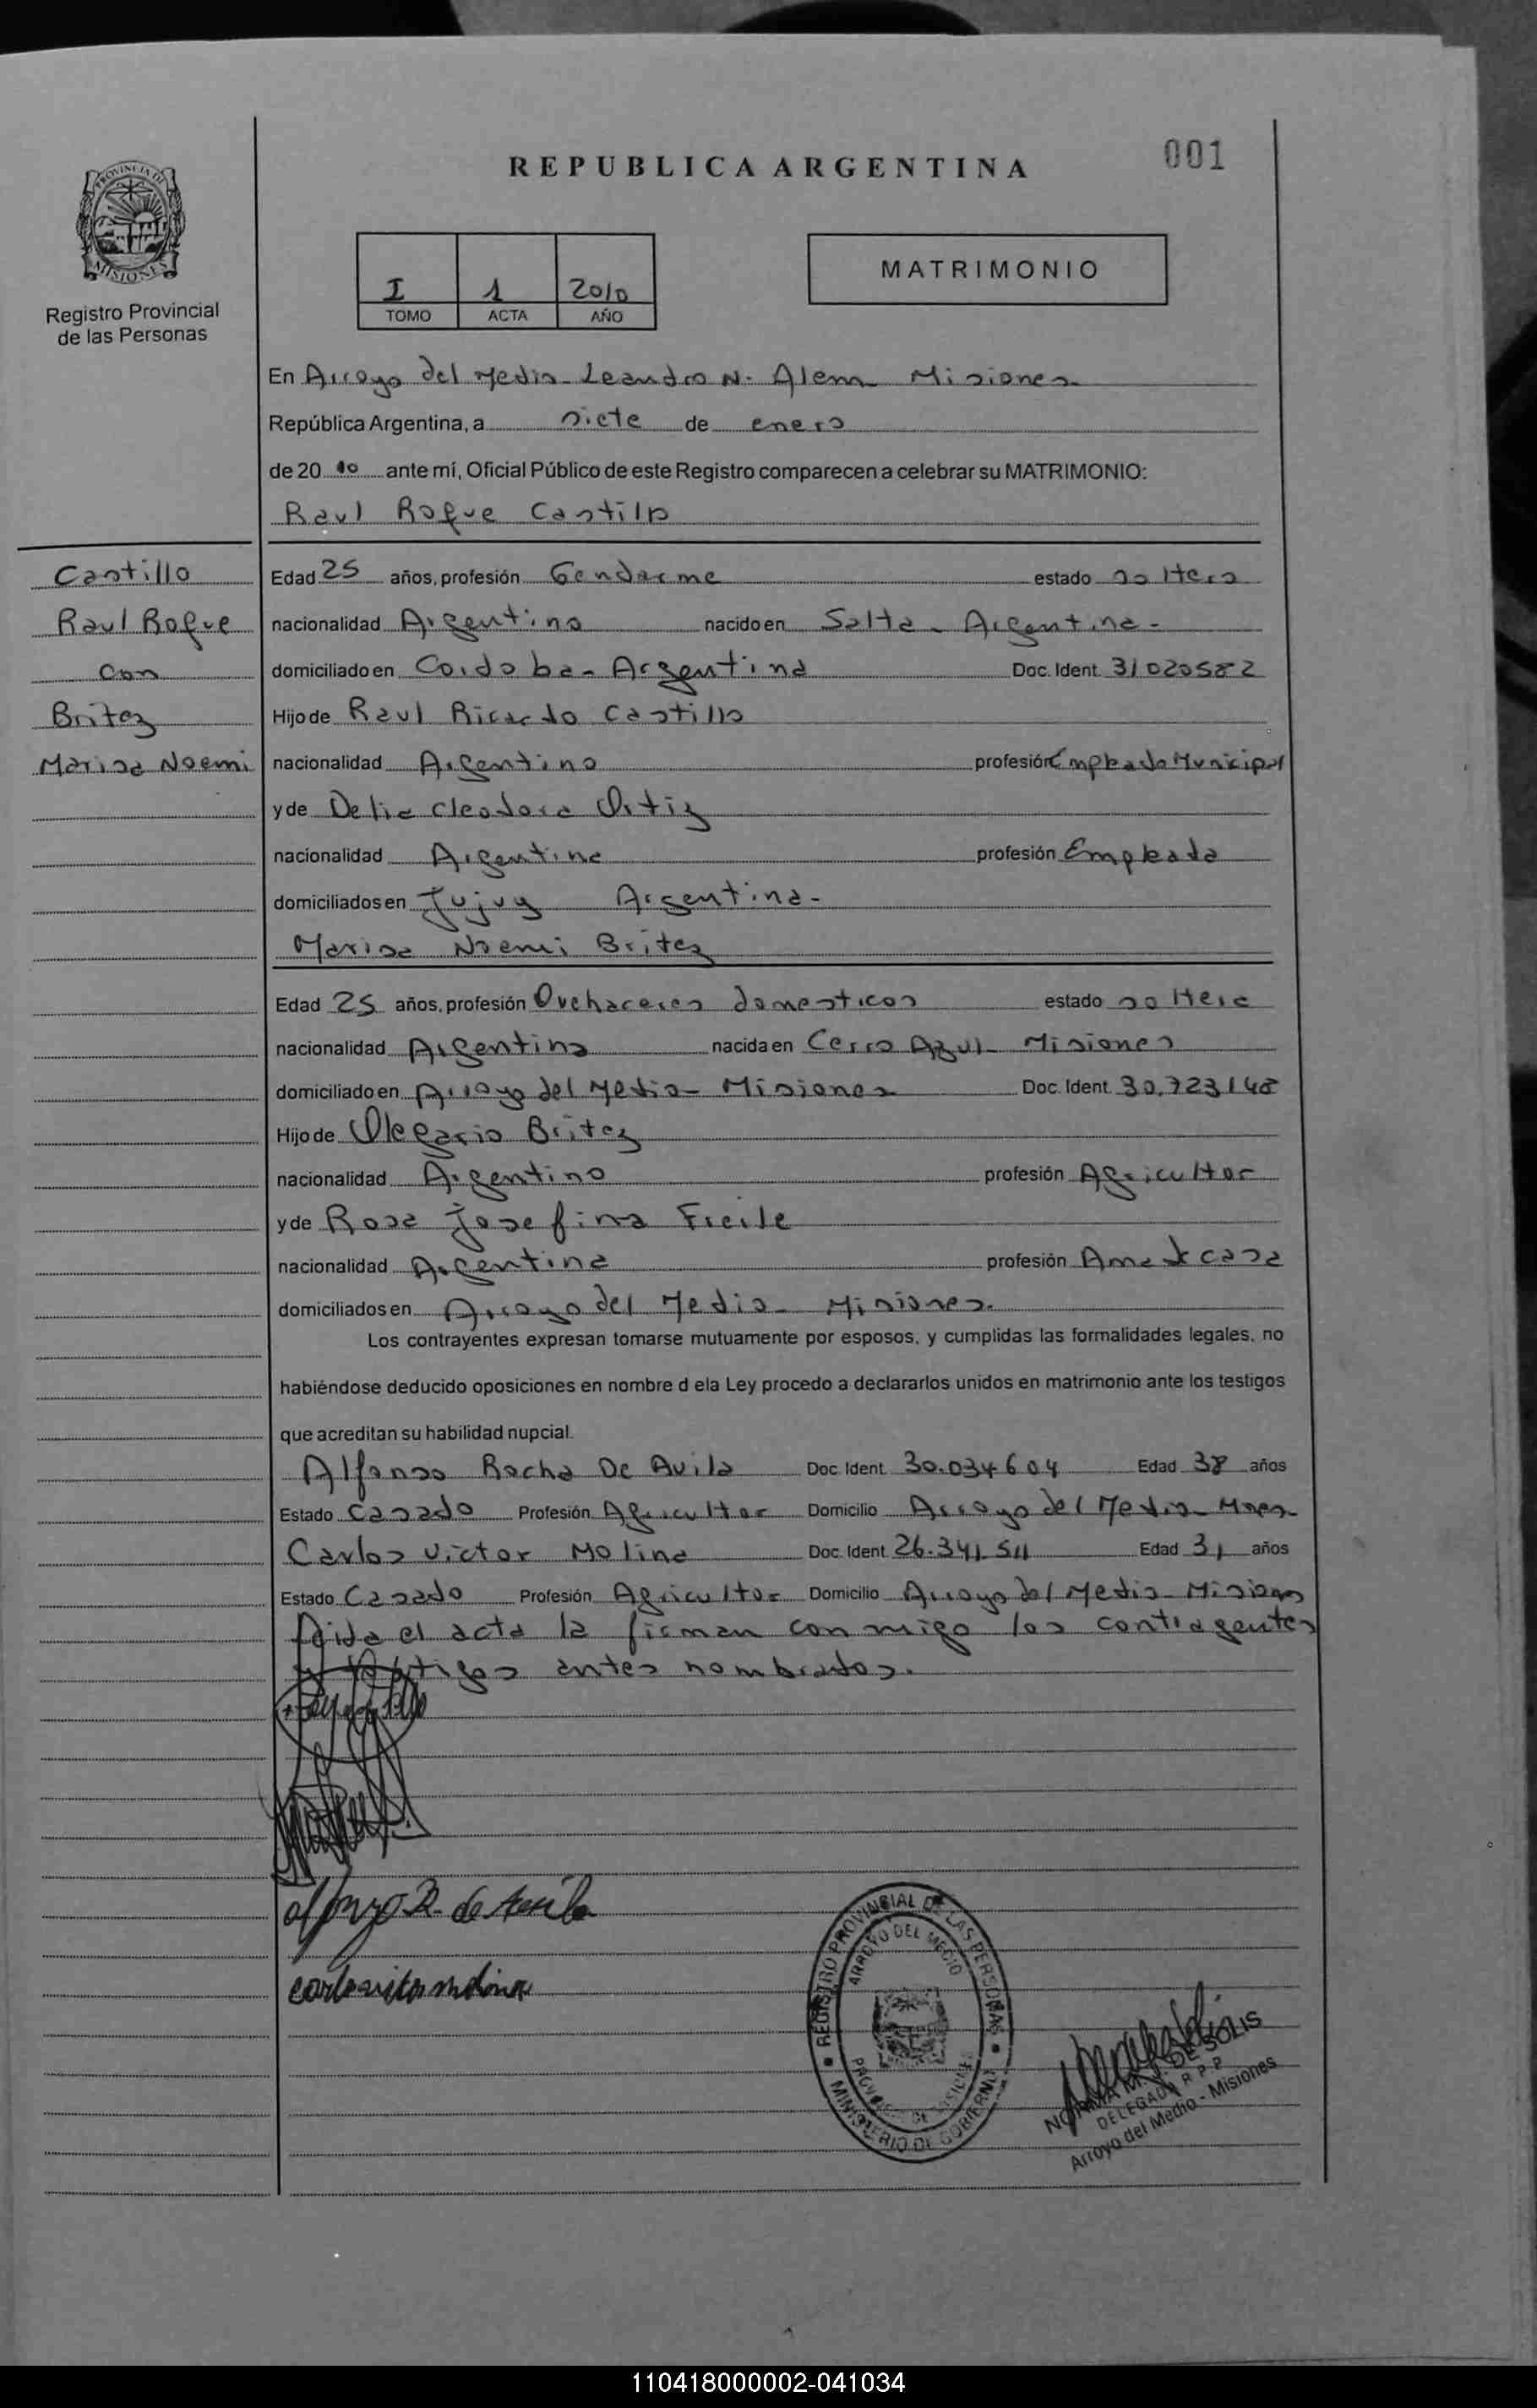 REPUBLICA ARGENTINA
001
PROVINCIA DE
MISIONES
Registro Provincial
de las Personas
I 1 2010
TOMO ACTA AÑO
MATRIMONIO
En Arroyo del Medio - Leandro N. Alem Misiones
República Argentina, a siete de enero
de 20 10 ante mí, Oficial Público de este Registro comparecen a celebrar su MATRIMONIO:
Raul Roque Castillo
Castillo
Raul Roque
con
Britez
Marisa Noemi
Edad 25 años, profesión Gendarme estado soltero
nacionalidad Argentino nacido en Salta - Argentina -
domiciliado en Cordoba - Argentina Doc. Ident. 31020582
Hijo de Raul Ricardo Castillo
nacionalidad Argentino profesión Empleado Municipal
y de Delia Cleodora Ortiz
nacionalidad Argentina profesión Empleada
domiciliados en Jujuy Argentina -
Marisa Noemi Britez
Edad 25 años, profesión Quehaceres domesticos estado soltera
nacionalidad Argentina nacida en Cerro Azul - Misiones
domiciliado en Arroyo del Medio - Misiones Doc. Ident. 30.723148
Hijo de Olegario Britez
nacionalidad Argentino profesión Agricultor
y de Rosa Josefina Freile
nacionalidad Argentina profesión Ama de casa
domiciliados en Arroyo del Medio - Misiones.
Los contrayentes expresan tomarse mutuamente por esposos, y cumplidas las formalidades legales, no
habiéndose deducido oposiciones en nombre d ela Ley procedo a declararlos unidos en matrimonio ante los testigos
que acreditan su habilidad nupcial.
Alfonso Rocha De Avila Doc. Ident. 30.034604 Edad 38 años
Estado Casado Profesión Agricultor Domicilio Arroyo del Medio - Mnes
Carlos Victor Molina Doc. Ident. 26.341.511 Edad 31 años
Estado Casado Profesión Agricultor Domicilio Arroyo del Medio - Misiones
leida el acta la firman con migo los contragentes
y testigos antes nombrados.
alfonzo R. de Avila
carlos victor molina
REGISTRO PROVINCIAL DE LAS PERSONAS
ARROYO DEL MEDIO
PROVINCIA DE MISIONES
MINISTERIO DE GOBIERNO
NORMA M. J. DE SOLIS
DELEGADA R.P.P
Arroyo del Medio - Misiones
110418000002-041034